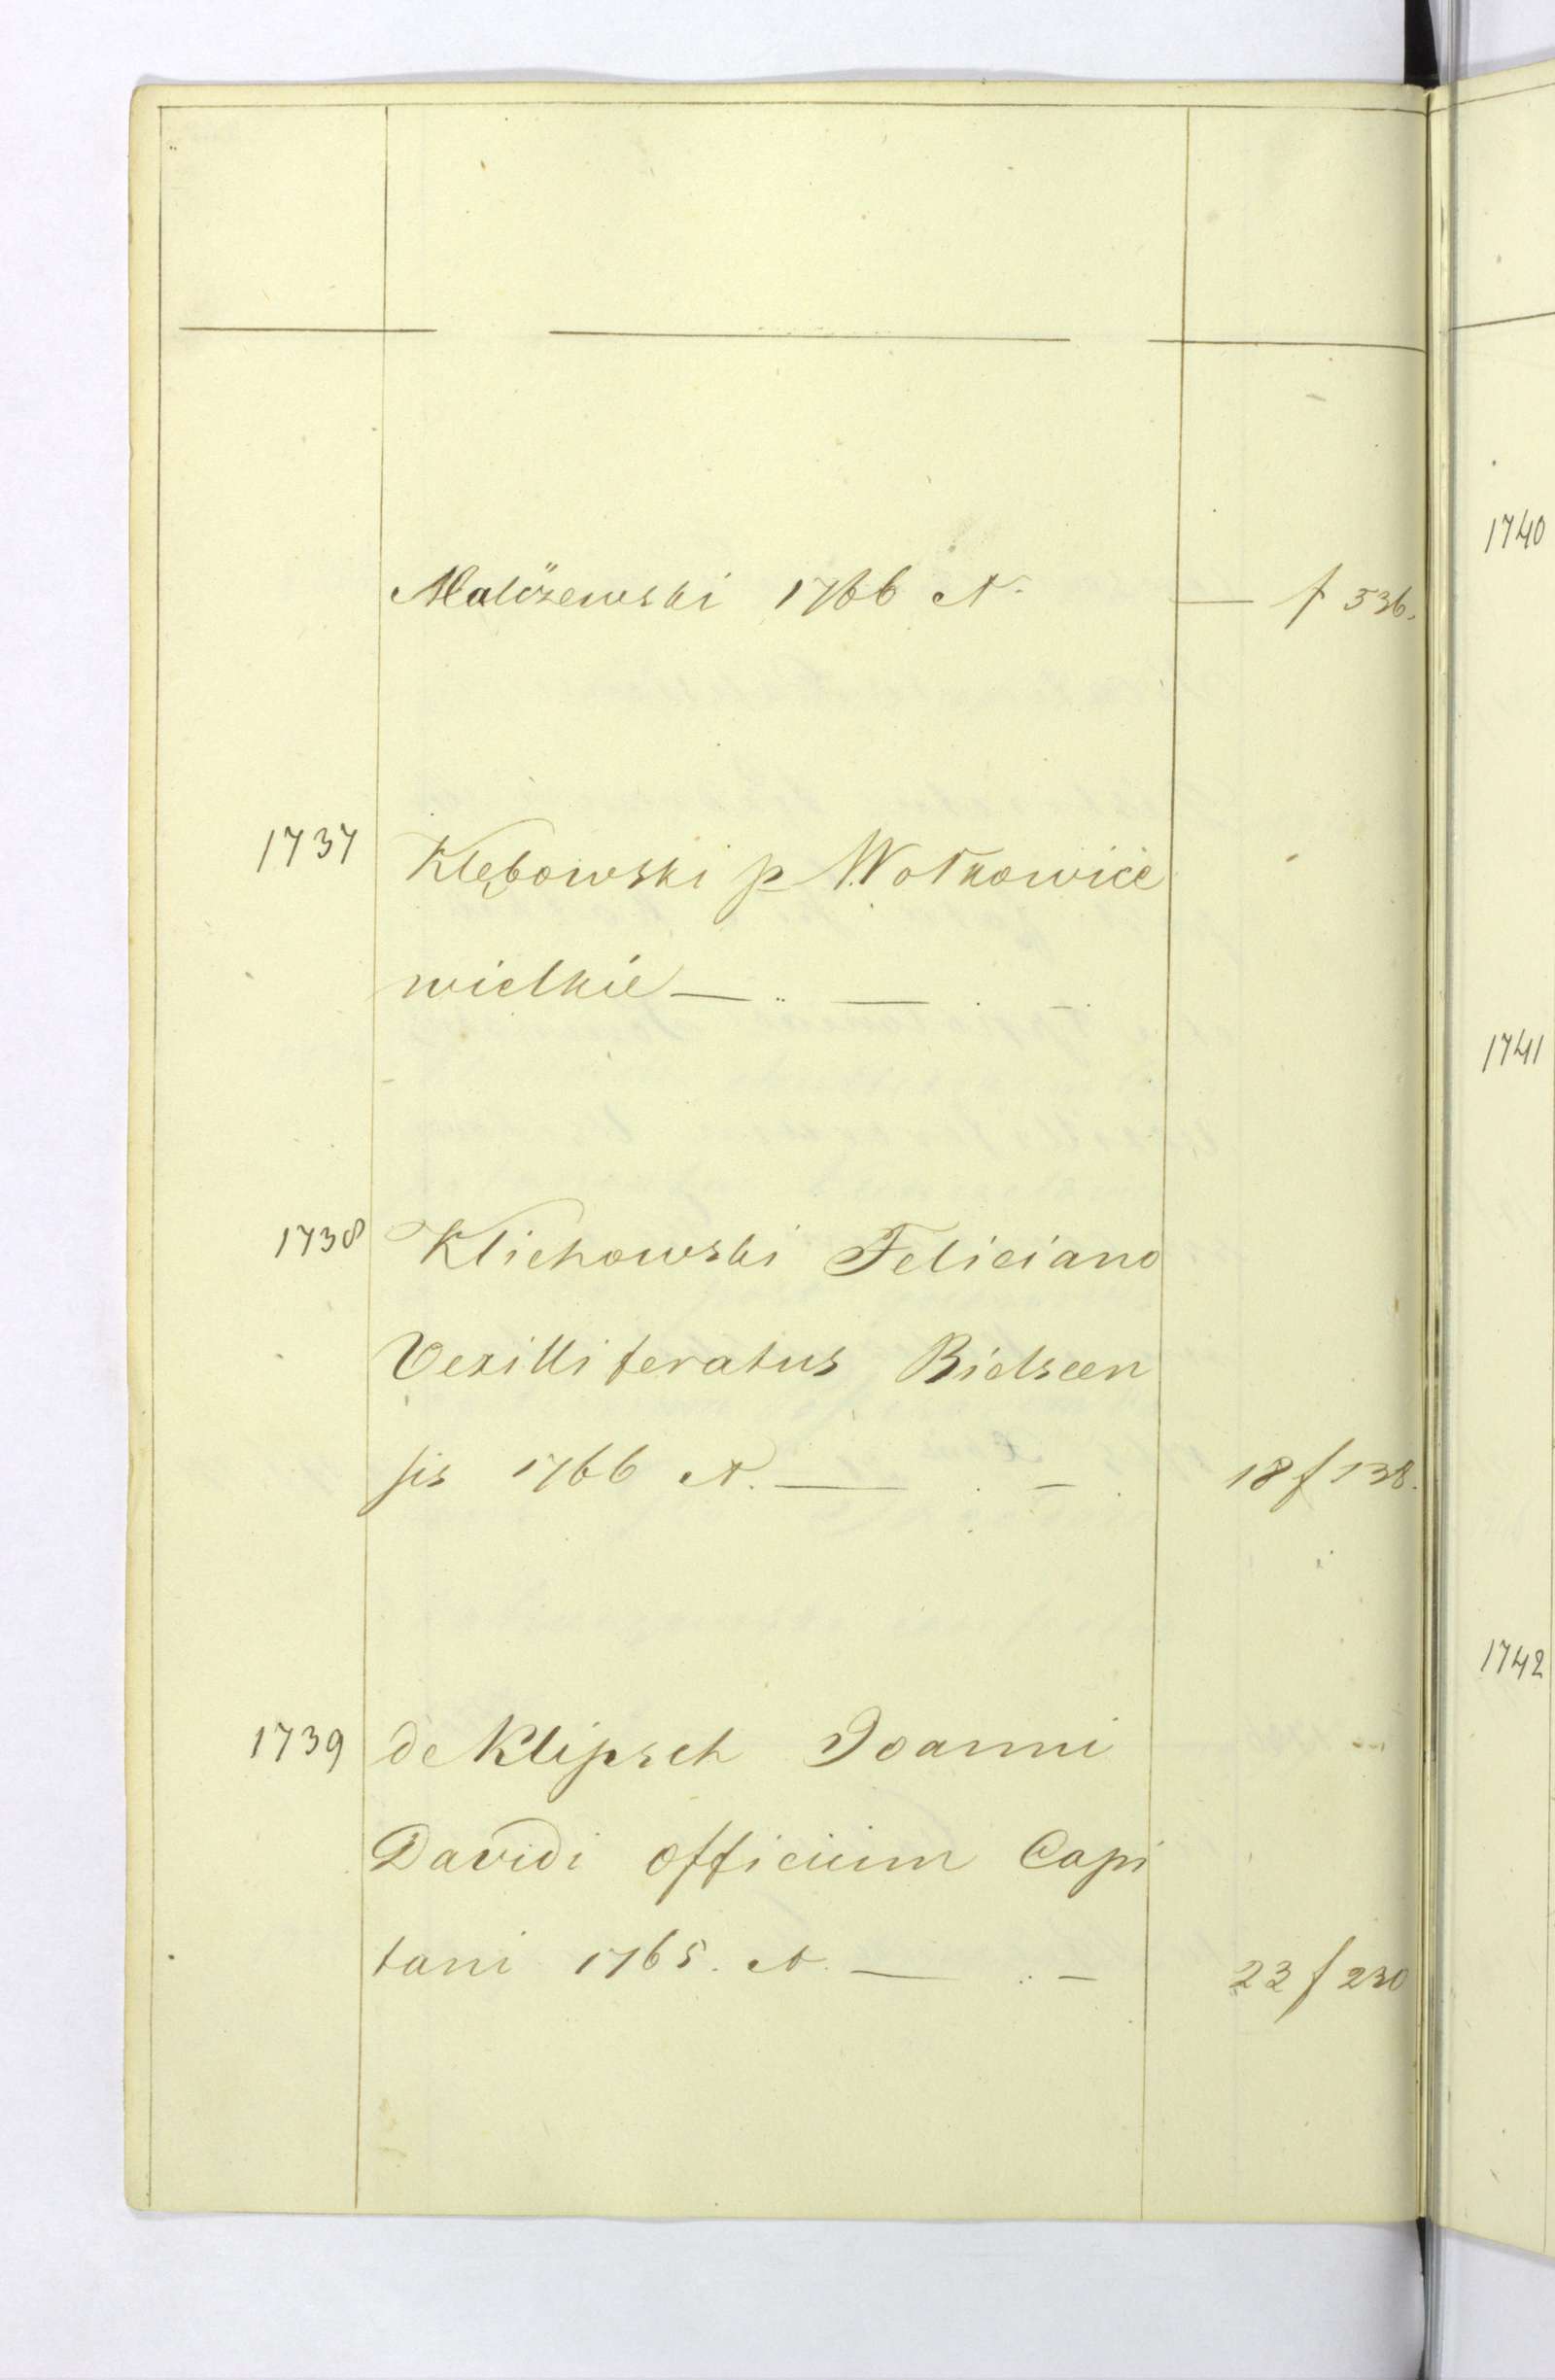 Malczewski 1766 A. — f 536.
1737 Klębowski p Wołkowice
wielkie — . — . — .
1738 Klichowski Feliciano
Vexilliferatus Bielscen
sis 1766 A. — . — . 18 f 138.
1739 de Klipsch Joanni
Davidi officium Capi
tani 1765. A. — . — 23 f 230
1740
1741
1742